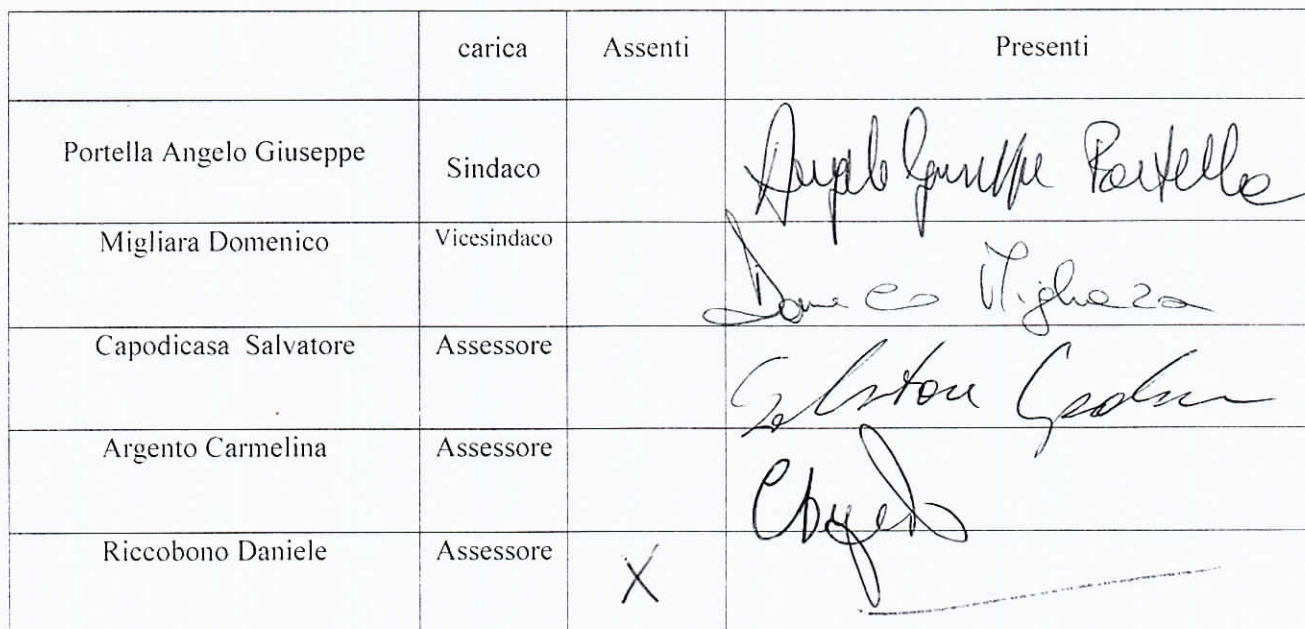 carica Assenti Presenti
Portella Angelo Giuseppe Sindaco Angelo Giuseppe Portella
Migliara Domenico Vicesindaco Domenico Migliara
Capodicasa Salvatore Assessore Salvatore
Argento Carmelina Assessore
Riccobono Daniele Assessore X